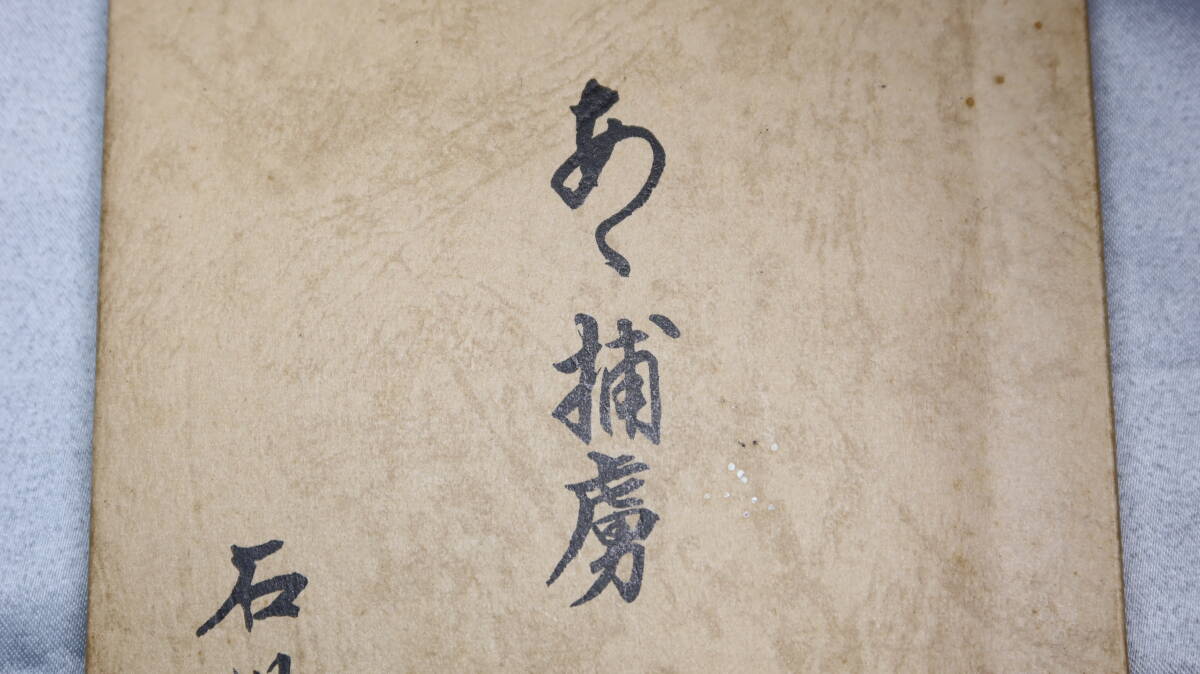 あゝ捕虜
石